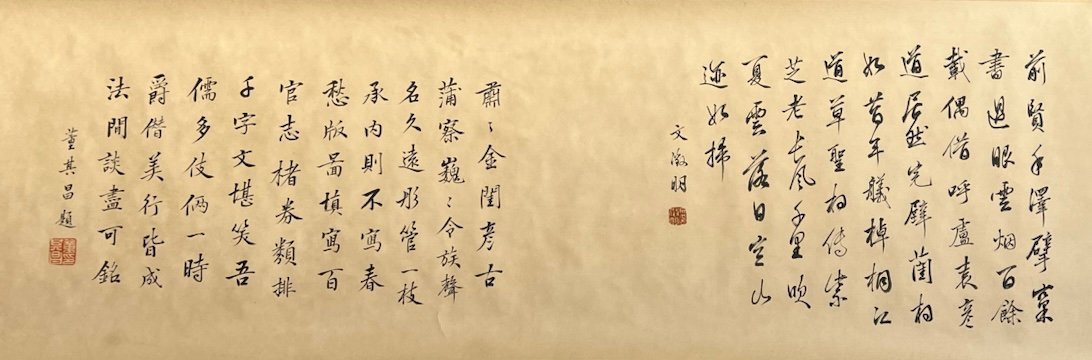 前賢手澤擘窠
書過眼雲烟百餘
載偶借呼盧袁彥
道居然完璧藺相
如昔年艤棹桐江
道草聖相傳素
芝老長風千里吹
夏雲落日空山
迹如掃
文徵明
肅〻金閨彥古
蒲察巍〻令族聲
名久遠彤管一枝
承内則不寫春
愁版啚填寫百
官志楮券類排
千字文堪笑吾
儒多伎倆一時
爵僭美行皆成
法閒談盡可銘
董其昌題